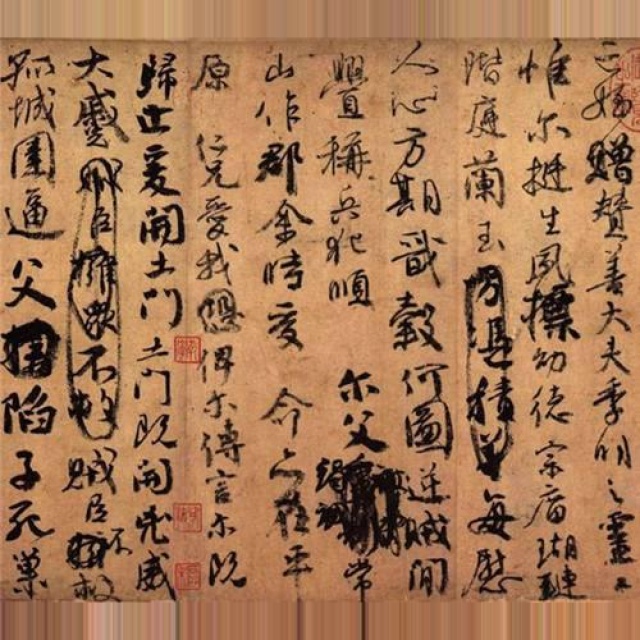 亡姪贈贊善大夫季明之靈曰
惟尔挺生夙標幼德宗廟瑚璉
階庭蘭玉方憑積善每慰
人心方期戩穀何圖逆賊閒
舋稱兵犯順尔父常
山作郡余時受命亦在平
原仁兄愛我俾尔傳言尔既
歸止爰開土門土門既開兇威
大蹙賊臣擁衆不救賊臣不救
孤城圍逼父陷子死巢